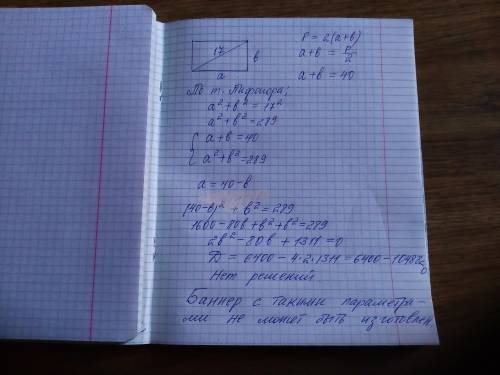 17
в
а
P = 2(a+в)
a+в = P/2
a+в = 40
По т. Пифагора;
a² + в² = 17²
a² + в² = 289
{ a+в = 40
a² + в² = 289
a = 40 - в
(40-в)² + в² = 289
1600 - 80в + в² + в² = 289
2в² - 80в + 1311 = 0
D = 6400 - 4·2·1311 = 6400 - 10488 <0
Нет решений
Баннер с такими параметра-
ми не может быть изготовлен